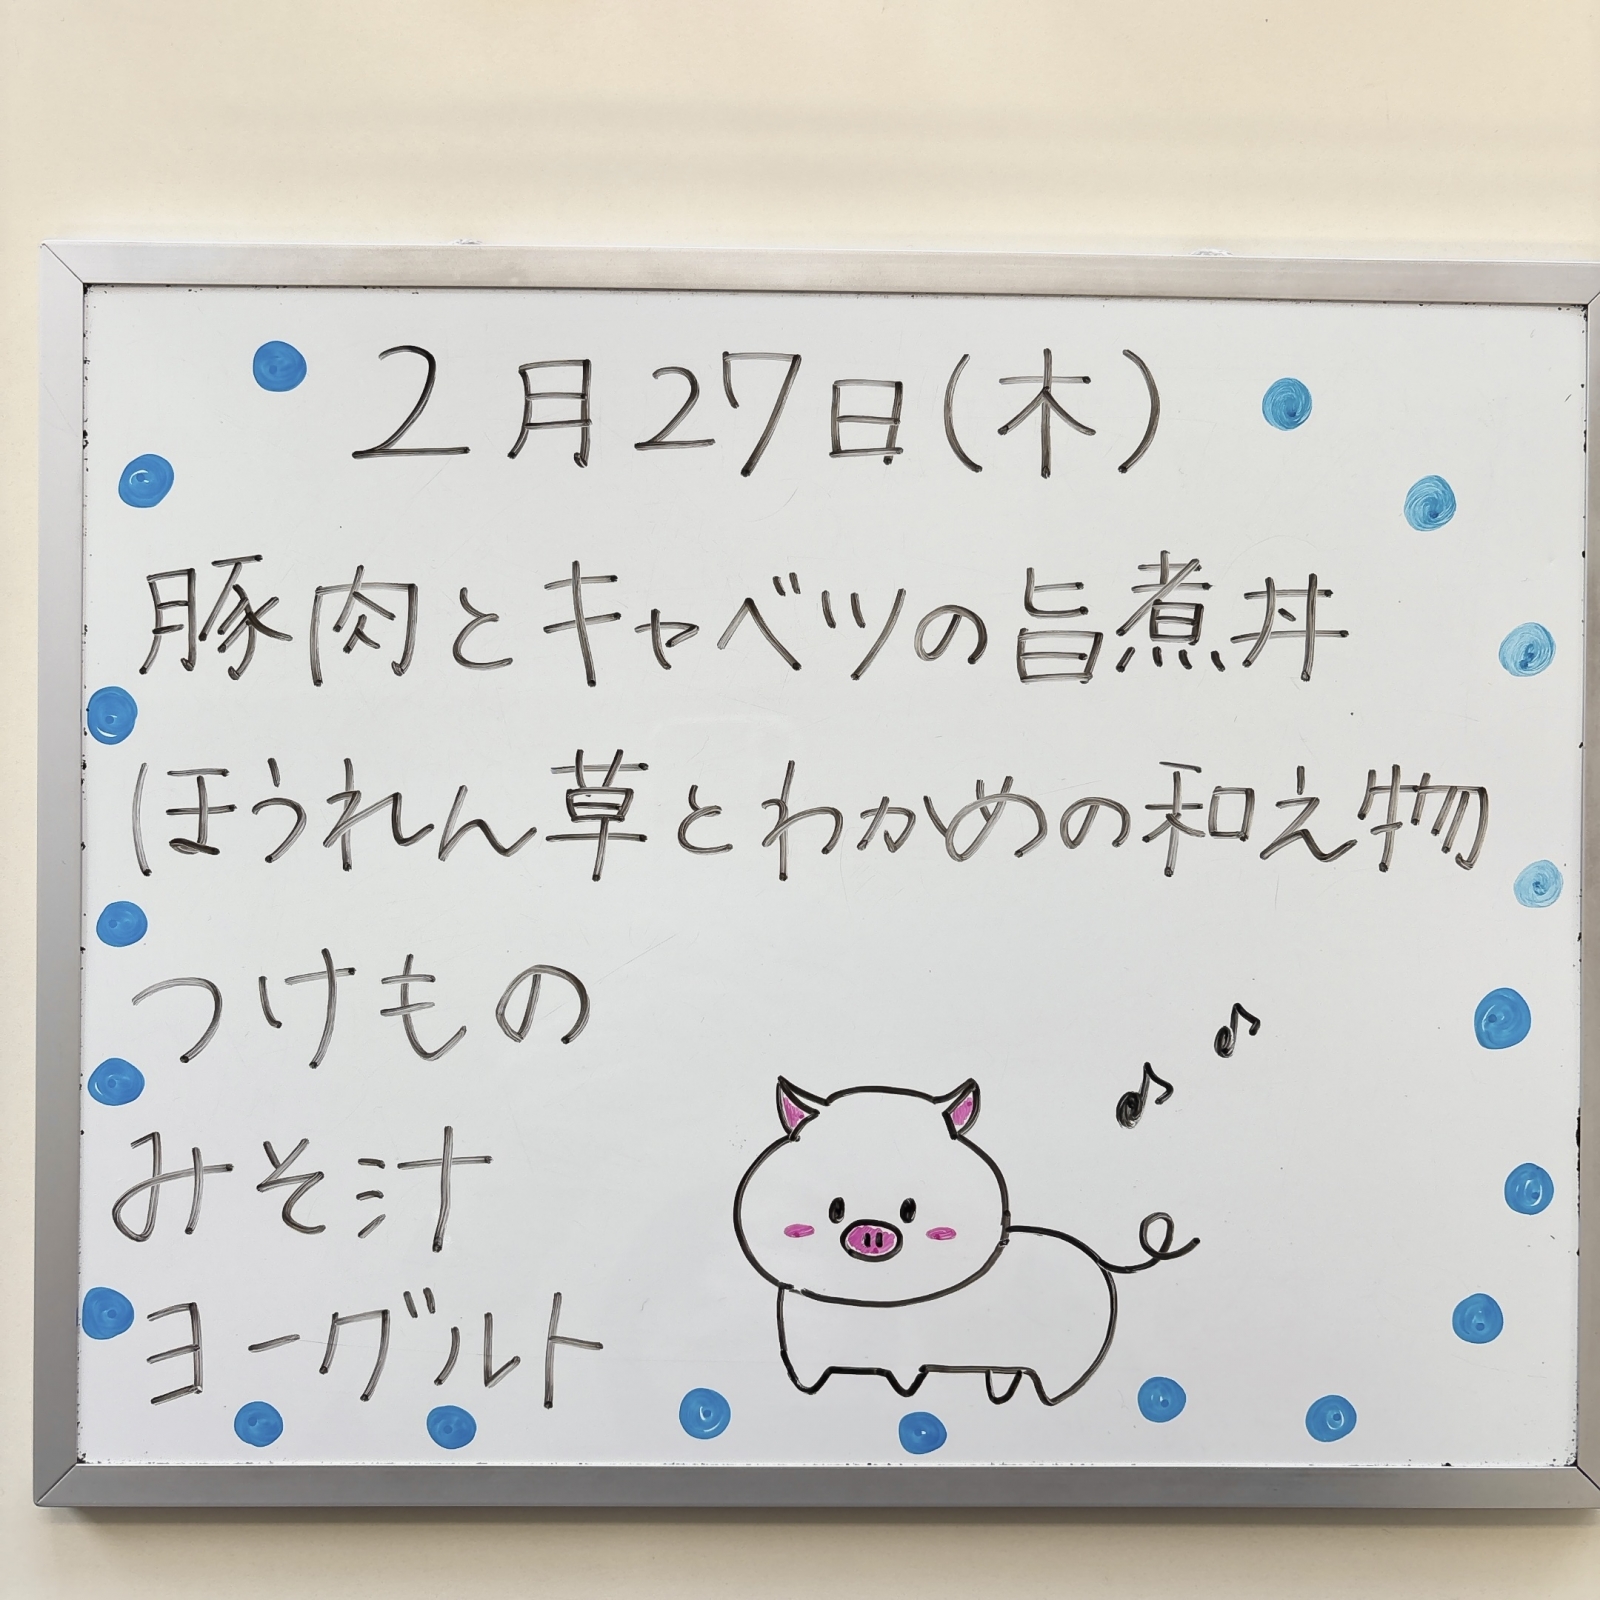 2月27日(木)
豚肉とキャベツの旨煮丼
ほうれん草とわかめの和え物
つけもの
みそ汁
ヨーグルト